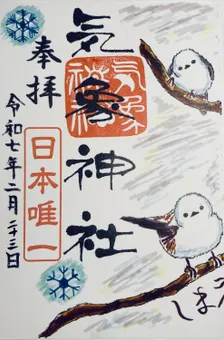 奉拝
気象神社
日本唯一
令和七年二月二十三日
しまえ